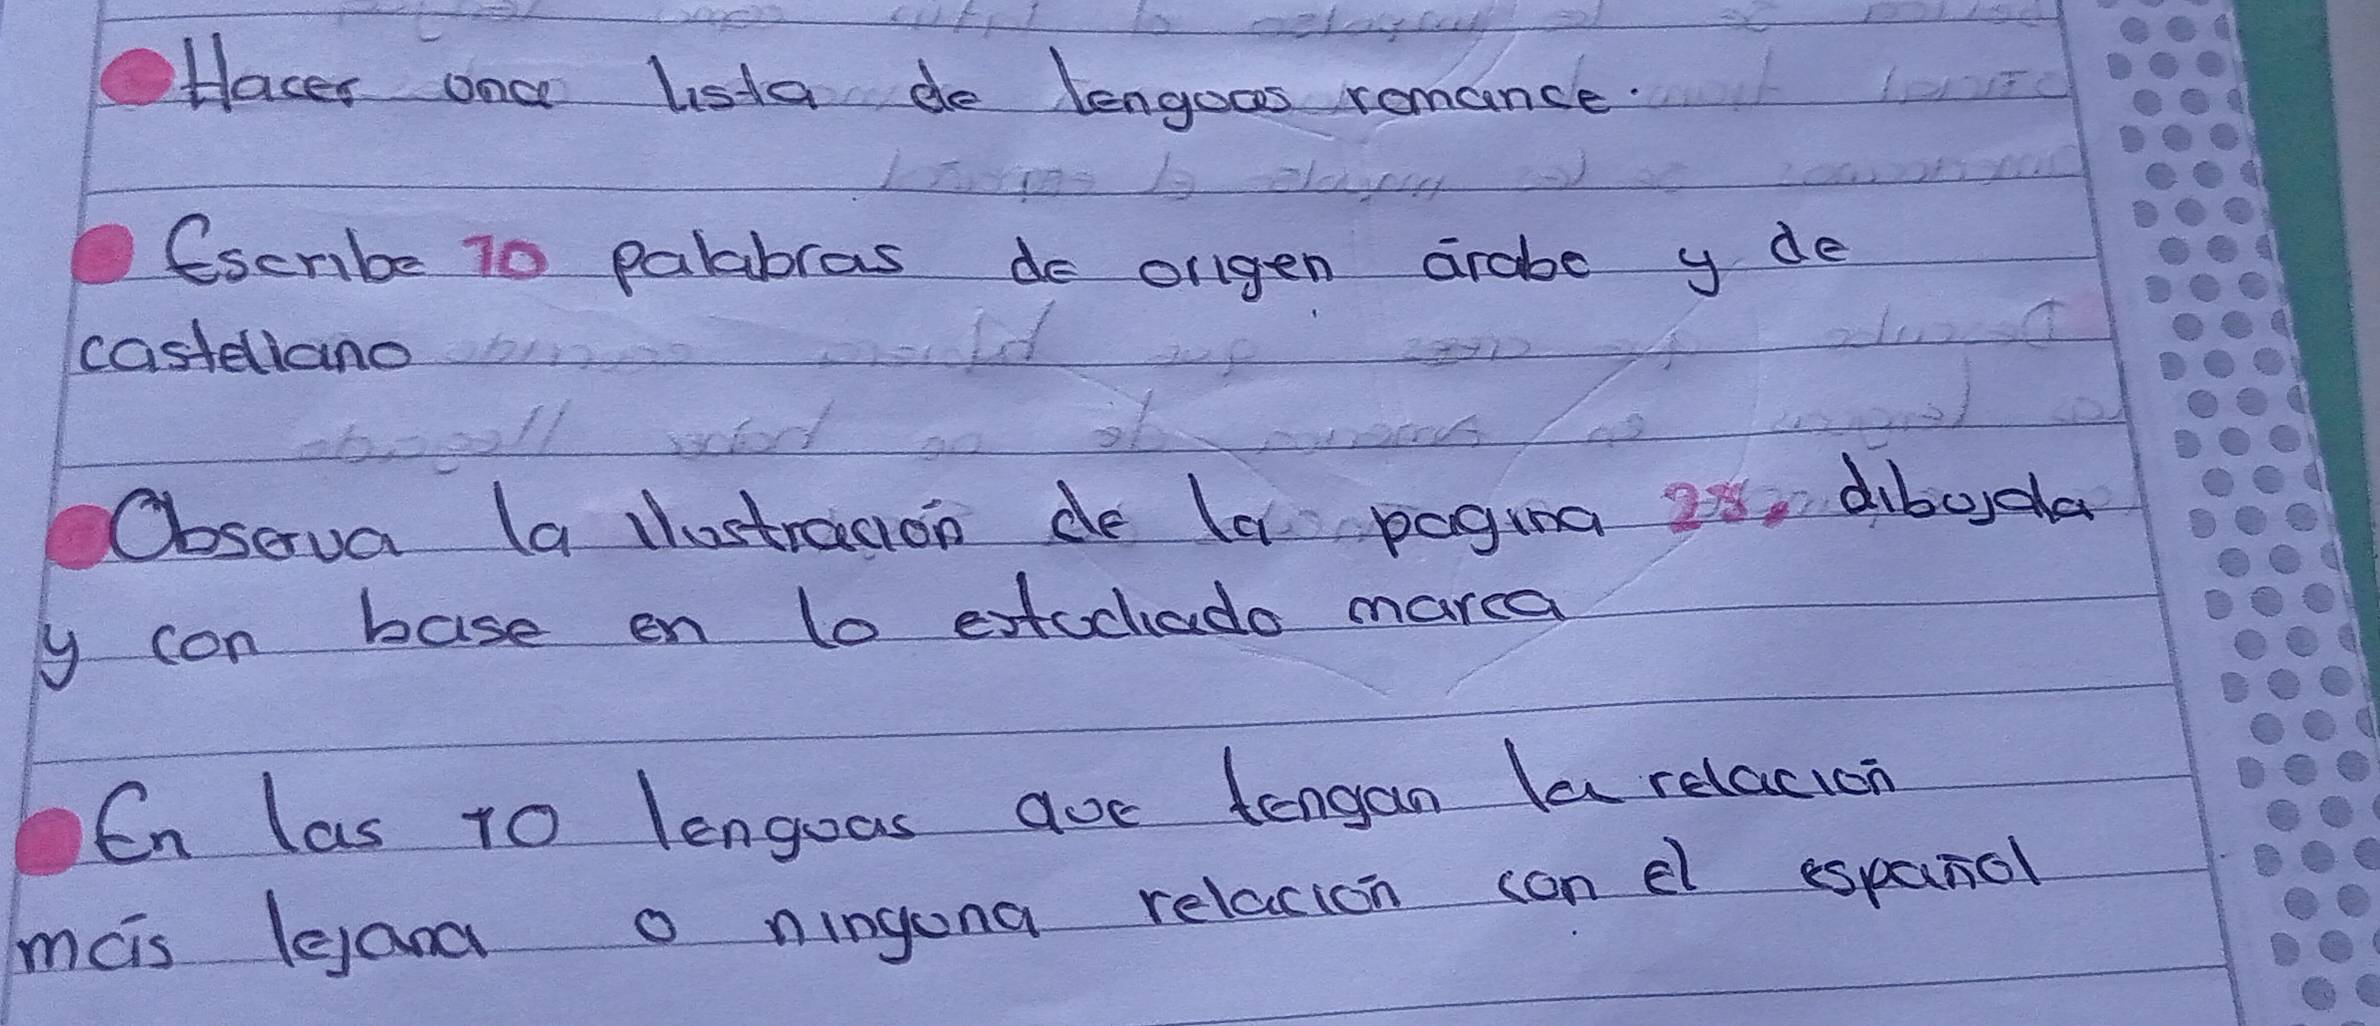 Hacer una lista de lenguas romance.
Escribe 10 palabras de origen árabe y de
castellano
Observa la ilustración de la pagina 28, dibujala
y con base en lo estudiado marca
En las 10 lenguas que tengan la relación
más lejana o ninguna relación con el español